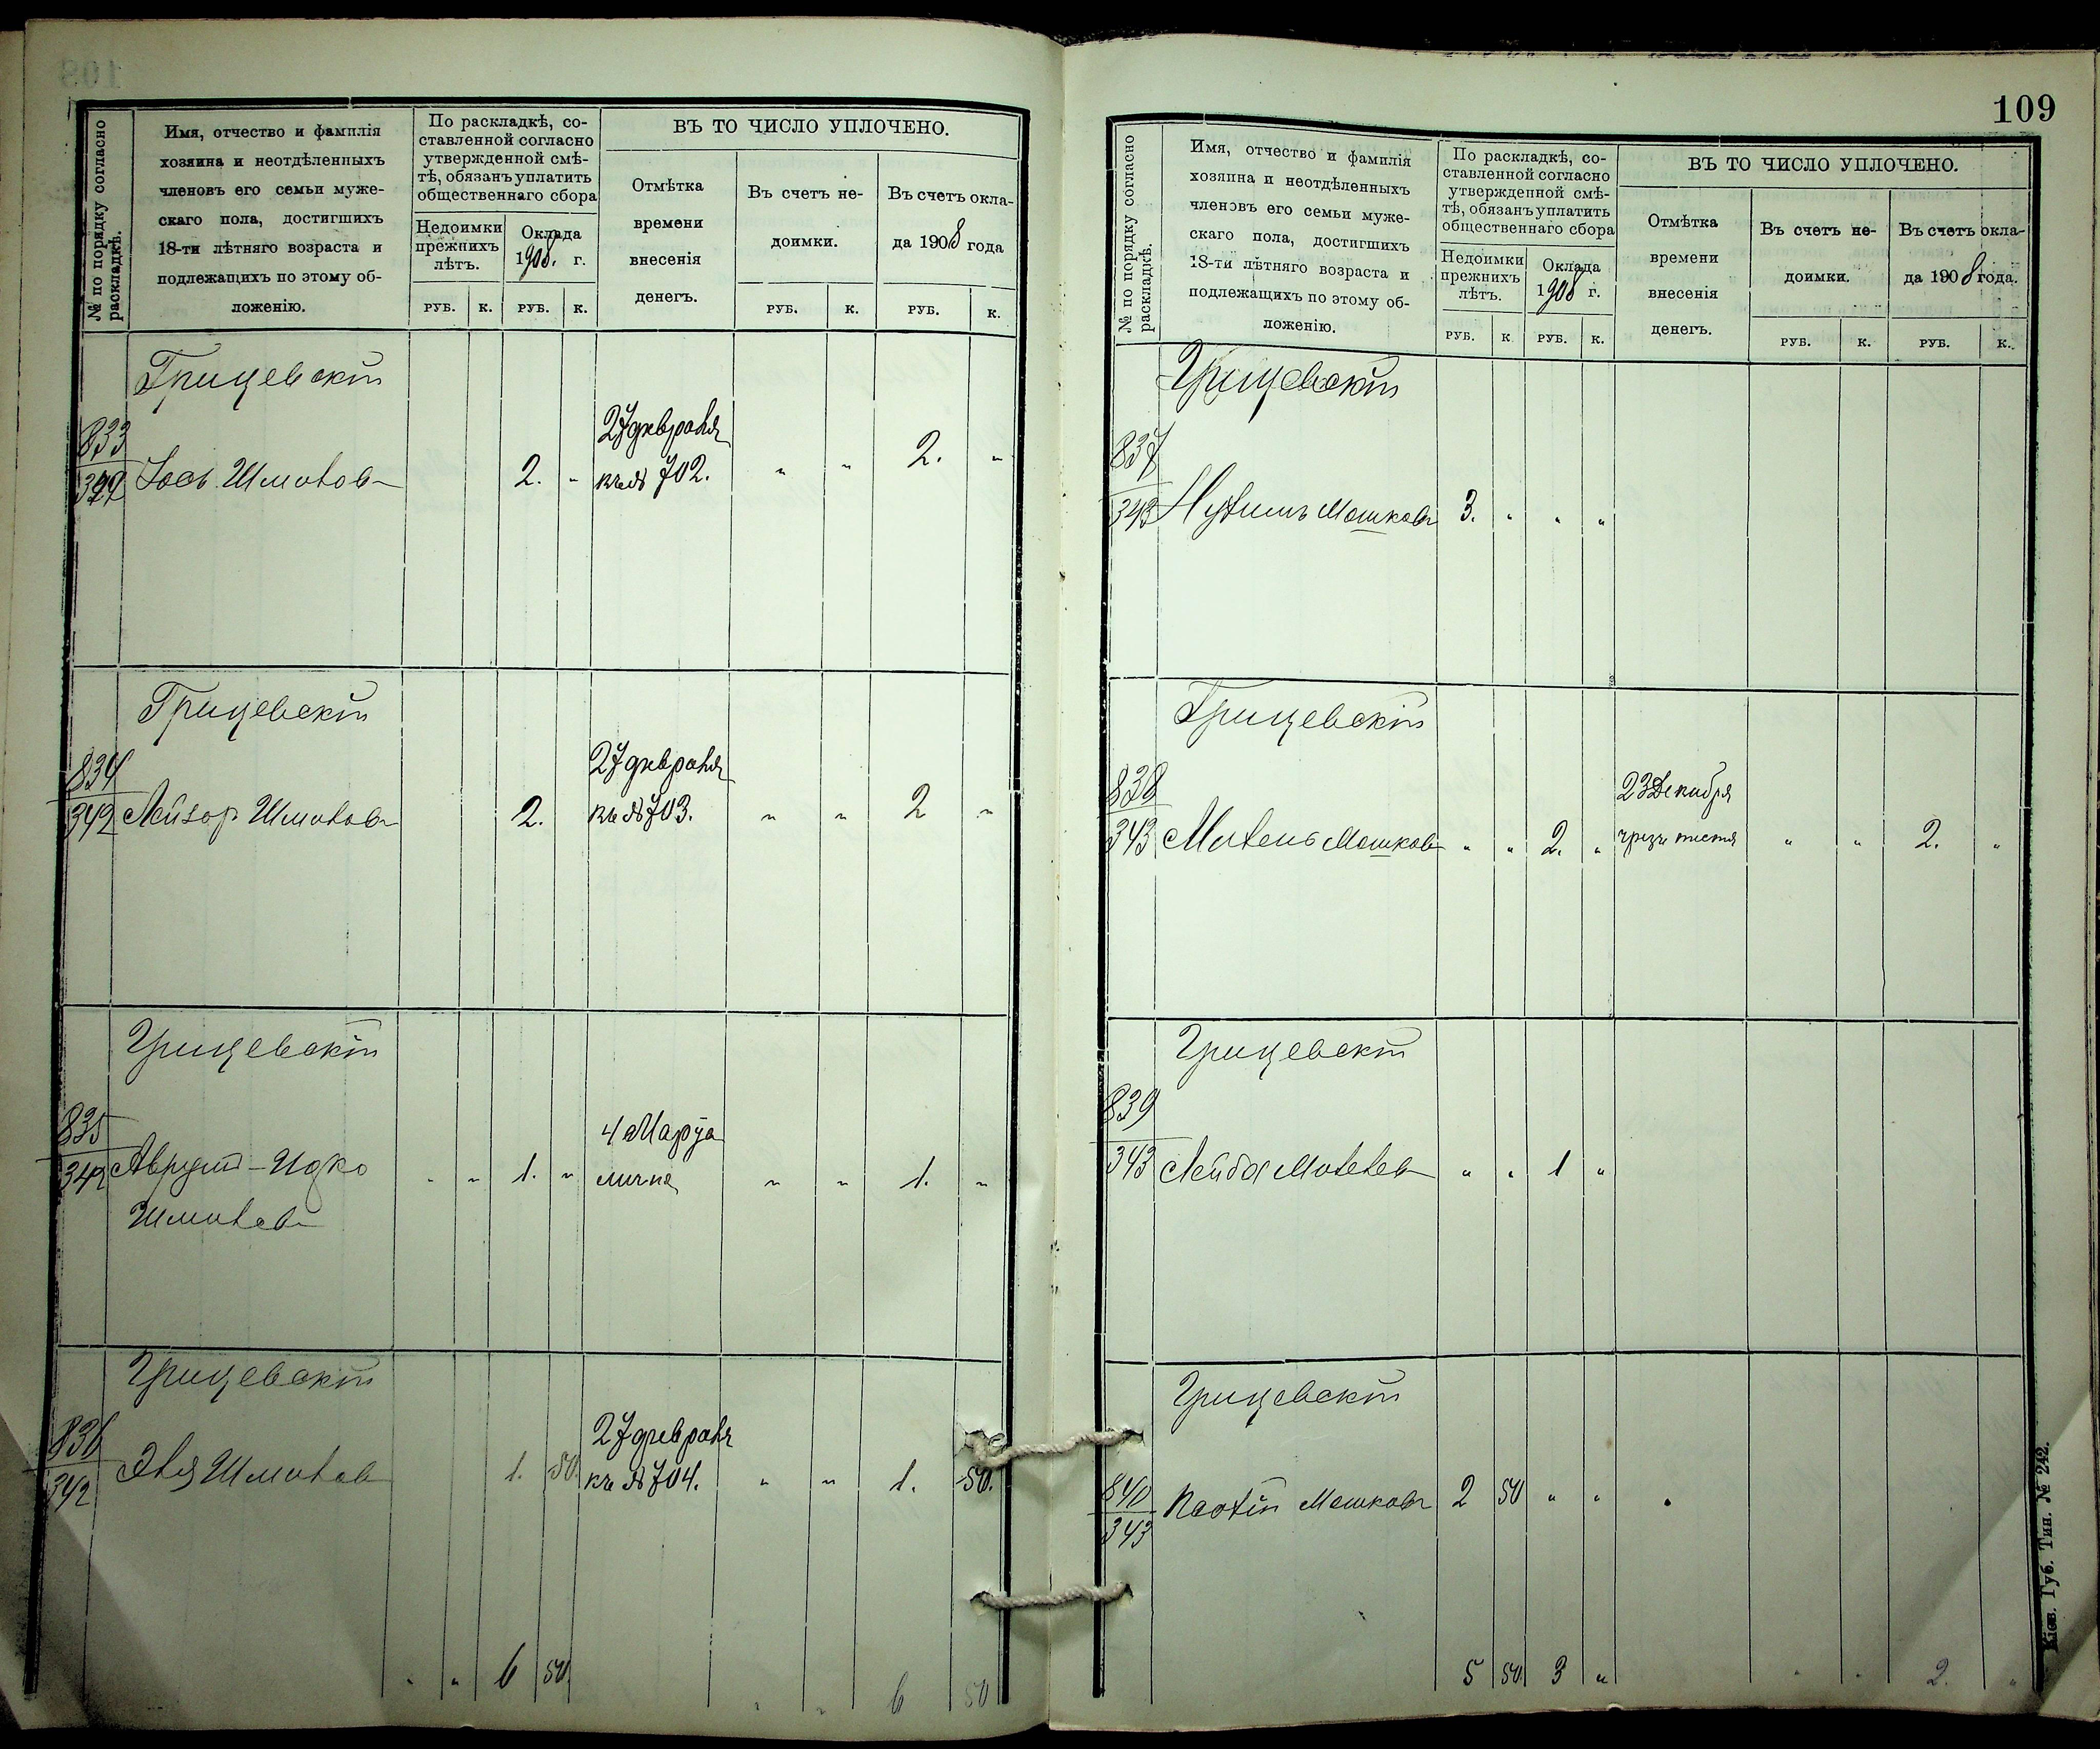 № по порядку согласно раскладкѣ.
Имя, отчество и фамилія
хозяина и неотдѣленныхъ
членовъ его семьи муже-
скаго пола, достигшихъ
18-ти лѣтняго возраста и
подлежащихъ по этому об-
ложенію.
По раскладкѣ, со-
ставленной согласно
утвержденной смѣ-
тѣ, обязанъ уплатить
общественнаго сбора
Недоимки
прежнихъ
лѣтъ.
Оклада
1908. г.
РУБ. К. РУБ. К.
ВЪ ТО ЧИСЛО УПЛОЧЕНО.
Отмѣтка
времени
внесенія
денегъ.
Въ счетъ не-
доимки.
РУБ. К.
Въ счетъ окла-
да 1908 года
РУБ. К.
Грицевскій
833
Іось Шмулов
2. "
27 февраля
къ № 702.
" " 2. "
Грицевскій
834
342
Лейзор Шмулов
2.
27 февраля
къ № 703.
" " 2 "
Грицевскій
835
342
Аврум-Идко
Шмулов
" " 1. "
4 Марта
лично
" " 1. "
Грицевскій
836
342
Шмулов
1. 50.
27 февраля
къ № 704.
" " 1. 50.
" " 6 50.
" " 6 50
109
№ по порядку согласно раскладкѣ.
Имя, отчество и фамилія
хозяина и неотдѣленныхъ
членовъ его семьи муже-
скаго пола, достигшихъ
18-ти лѣтняго возраста и
подлежащихъ по этому об-
ложенію.
По раскладкѣ, со-
ставленной согласно
утвержденной смѣ-
тѣ, обязанъ уплатить
общественнаго сбора
Недоимки
прежнихъ
лѣтъ.
Оклада
1908 г.
РУБ. К. РУБ. К.
ВЪ ТО ЧИСЛО УПЛОЧЕНО.
Отмѣтка
времени
внесенія
денегъ.
Въ счетъ не-
доимки.
РУБ. К.
Въ счетъ окла-
да 1908 года.
РУБ. К.
Грицевскій
837
343
Нухимъ Мошков
3. " " "
Грицевскій
838
343
Мошков
" " 2. "
23 Декабря
чрезъ
" " 2. "
Грицевскій
839
343
Лейба
" " 1 "
Грицевскій
840
343
Мошков
2 50 " "
5 50. 3 "
" " 2. "
Кіев. Губ. Тип. № 242.